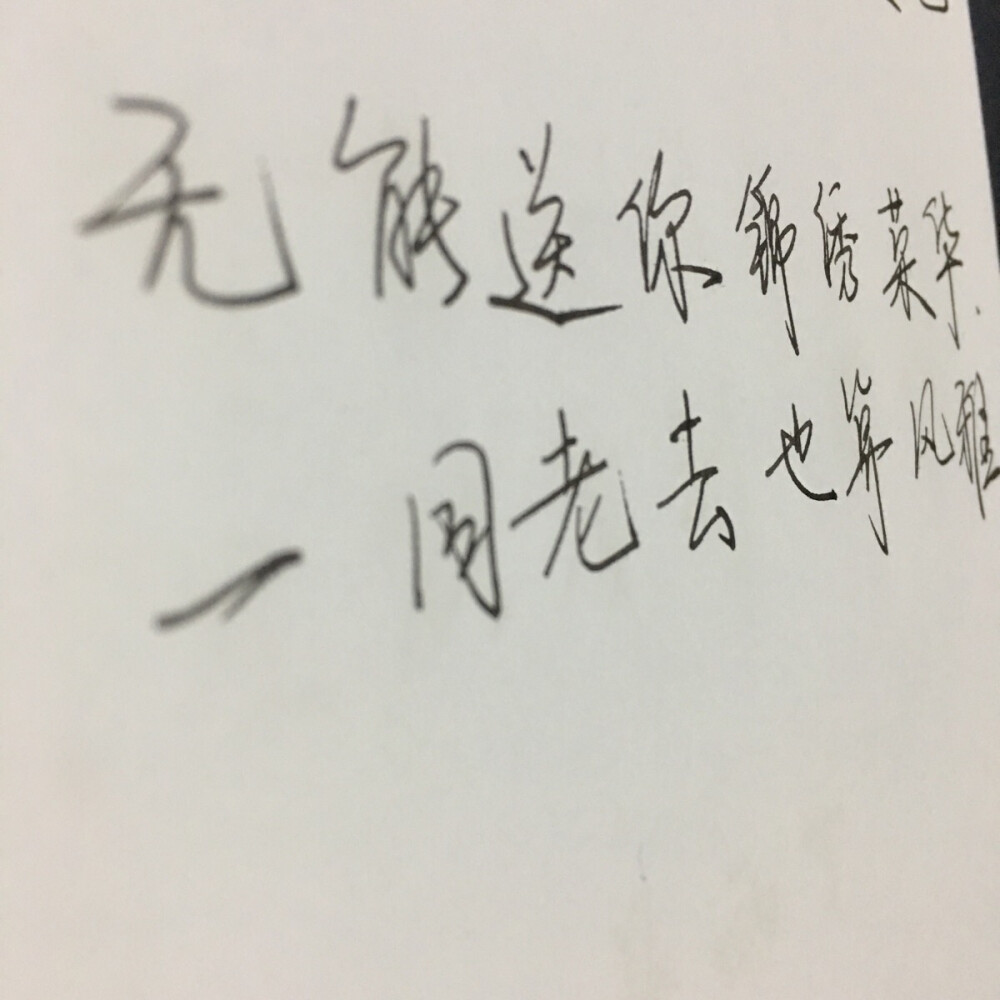 无能送你锦绣荣华.
一同老去也算风雅